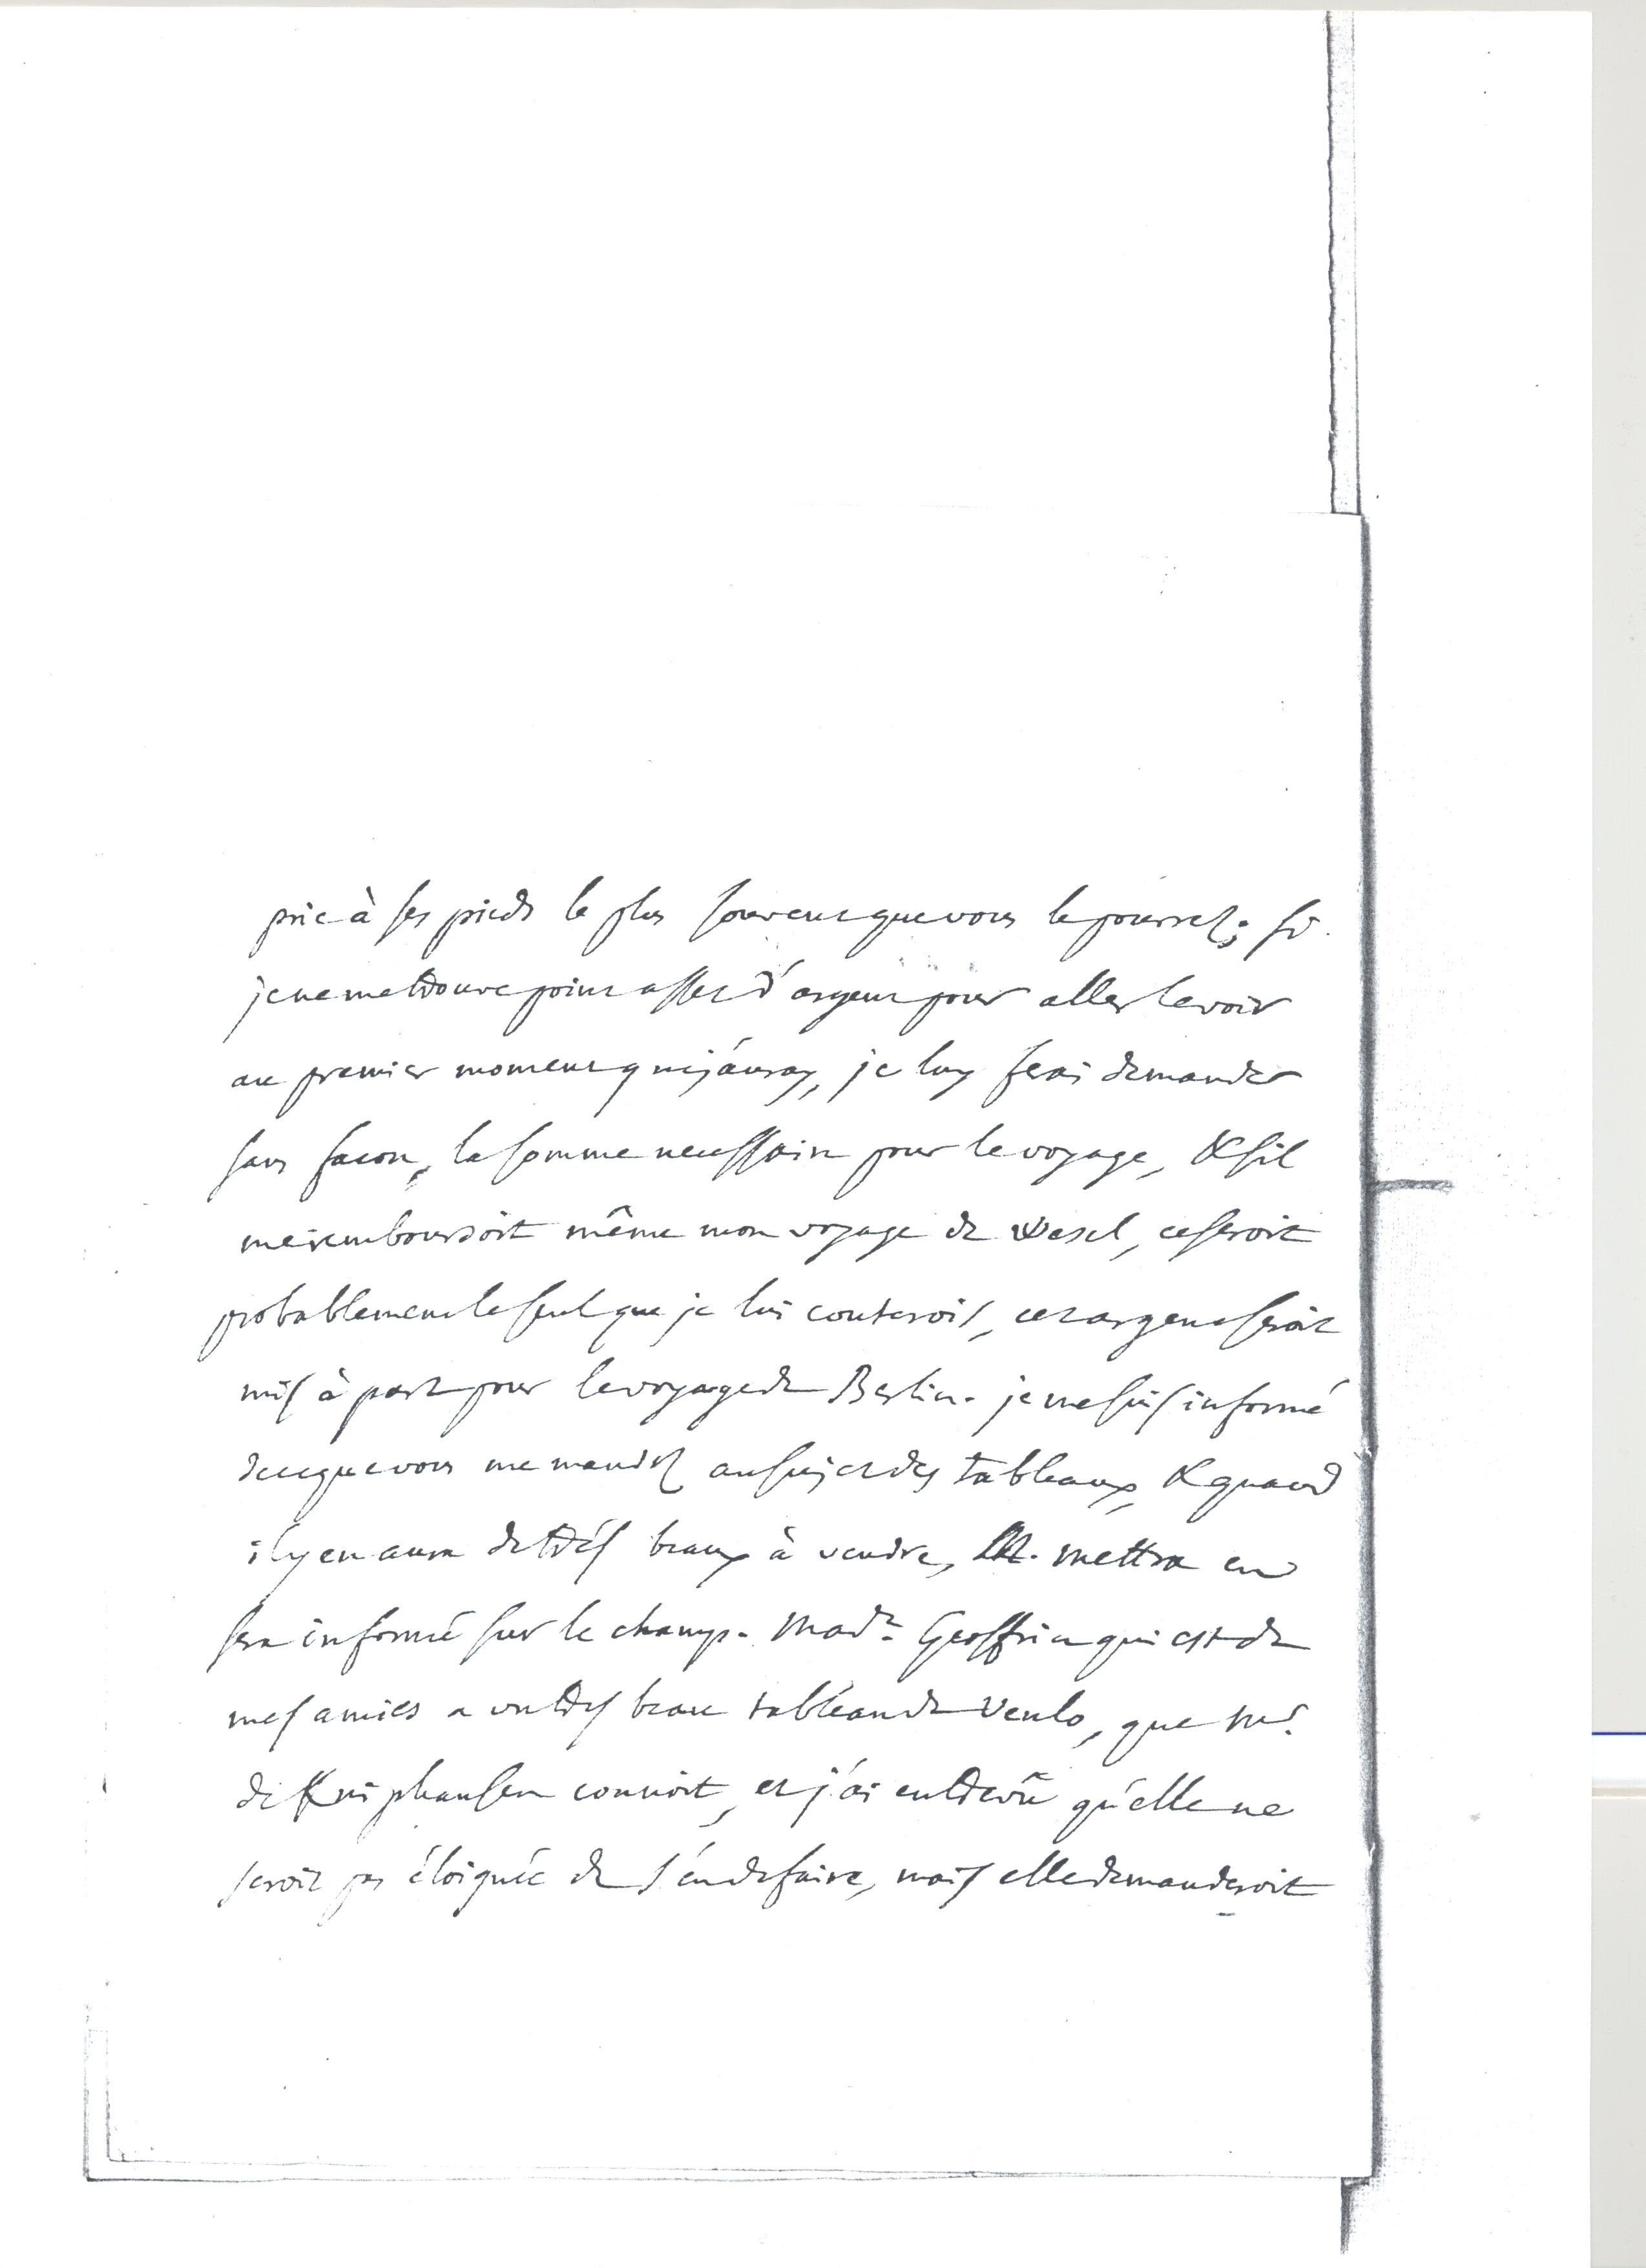 prie à ses pieds le plus souvent que vous le pourrez; si
je ne me trouve point assez d'argent pour aller le voir
au premier moment qui j'auray, je luy ferai demander
sans facon, la somme necessaire pour le voyage, & s'il
me remboursoit même mon voyage de Wesel, ce seroit
probablement le seul que je lui couterois, cet argent seroit
mis à part pour le voyage de Berlin. je me suis informé
de ce que vous me mandez au sujet des tableaux, & quand
il y en aura de très beaux à vendre, M. mettra en
sera informé sur le champ. Made. Geoffrin qui est de
mes amies a un très beau tableau de Venlo, que Mr.
de Kniphausen connoit, et j'ai entrevû qu'elle ne
seroit pas éloignée de s'en defaire, mais elle demanderoit